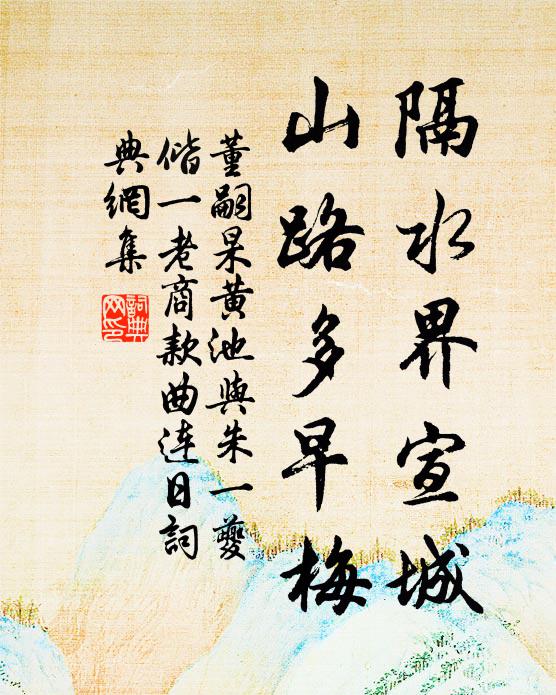 隔水界宣城
山路多早梅
董嗣杲黄池與朱一夔
偕一老商款曲连日詞
典網集
詞典
网印